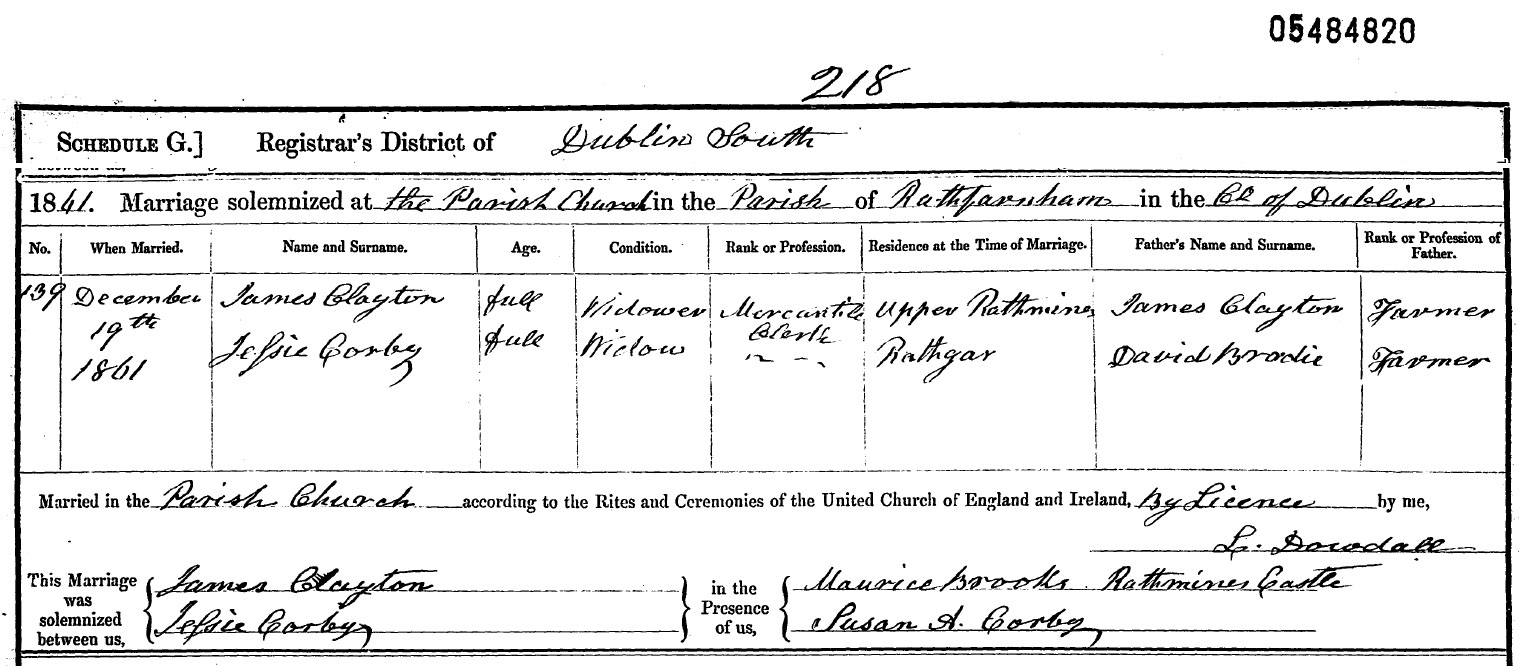 05484820
218
SCHEDULE G.] Registrar's District of Dublin South
1861. Marriage solemnized at the Parish Church in the Parish of Rathfarnham in the Co. of Dublin
No. When Married. Name and Surname. Age. Condition. Rank or Profession. Residence at the Time of Marriage. Father's Name and Surname. Rank or Profession of Father.
139 December 19th 1861 James Clayton full Widower Mercantile Clerk Upper Rathmines James Clayton Farmer
Jessie Corby full Widow Rathgar David Brodie Farmer
Married in the Parish Church according to the Rites and Ceremonies of the United Church of England and Ireland, By Licence by me,
L. Dowdall
This Marriage was solemnized between us, James Clayton in the Presence of us, Maurice Brooks Rathmines Castle
Jessie Corby Susan A. Corby